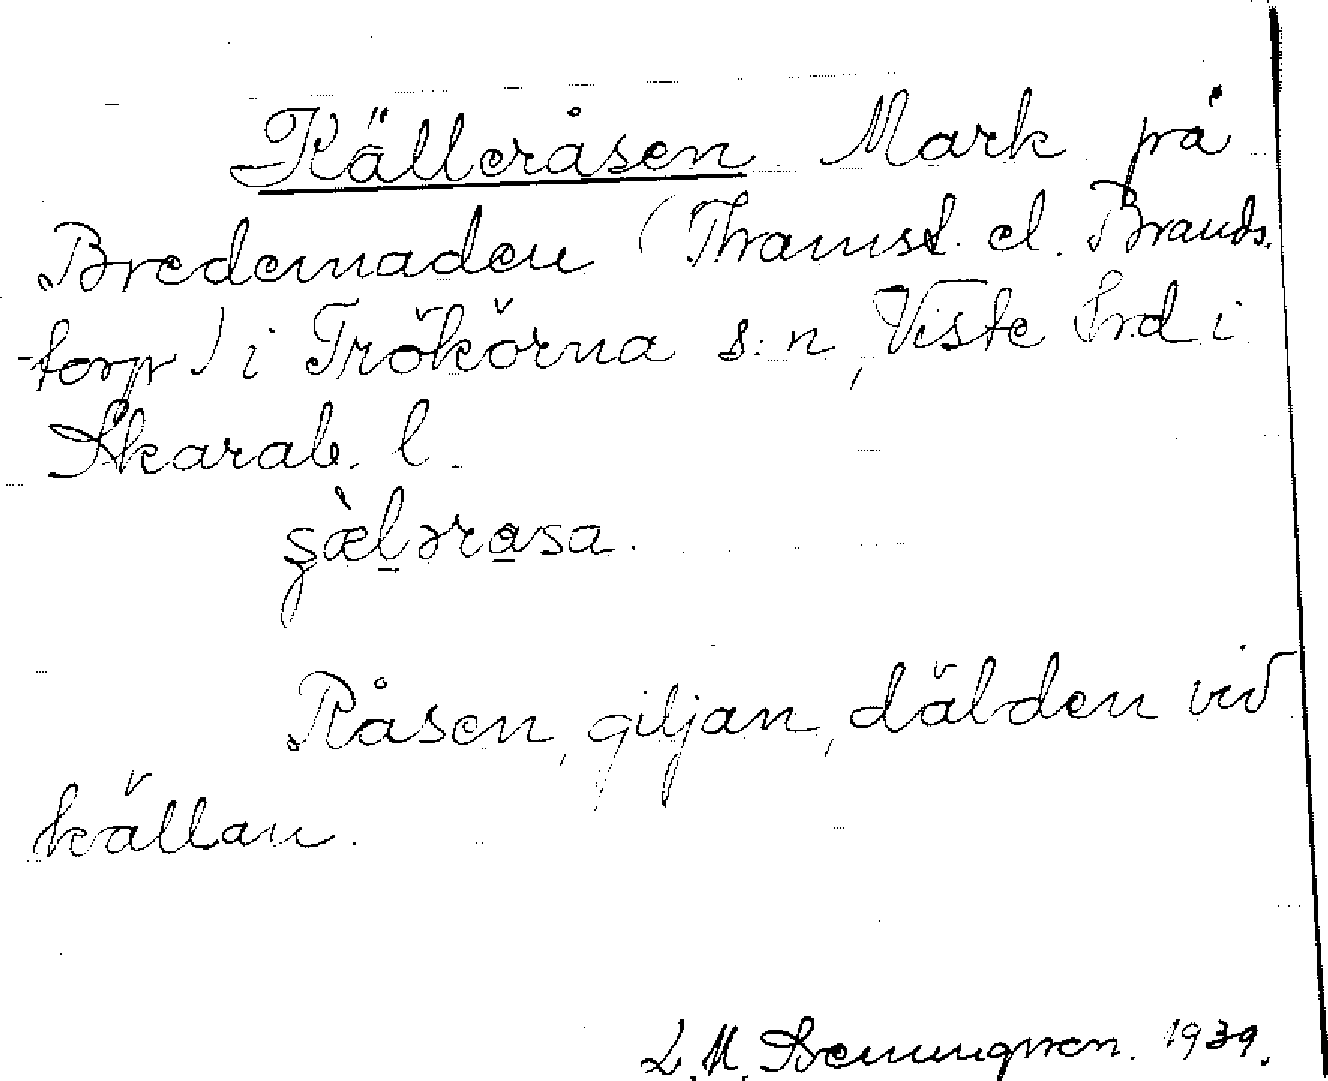 Källeråsen Mark på
Bredemaden (Thamst. el. Brands-
torp) i Trökörna s:n, Viste hrd i
Skarab. l.
ʂæ̀l̠əra̠sa.
Råsen, giljan, dälden vid
källan.
L. M. 1939.